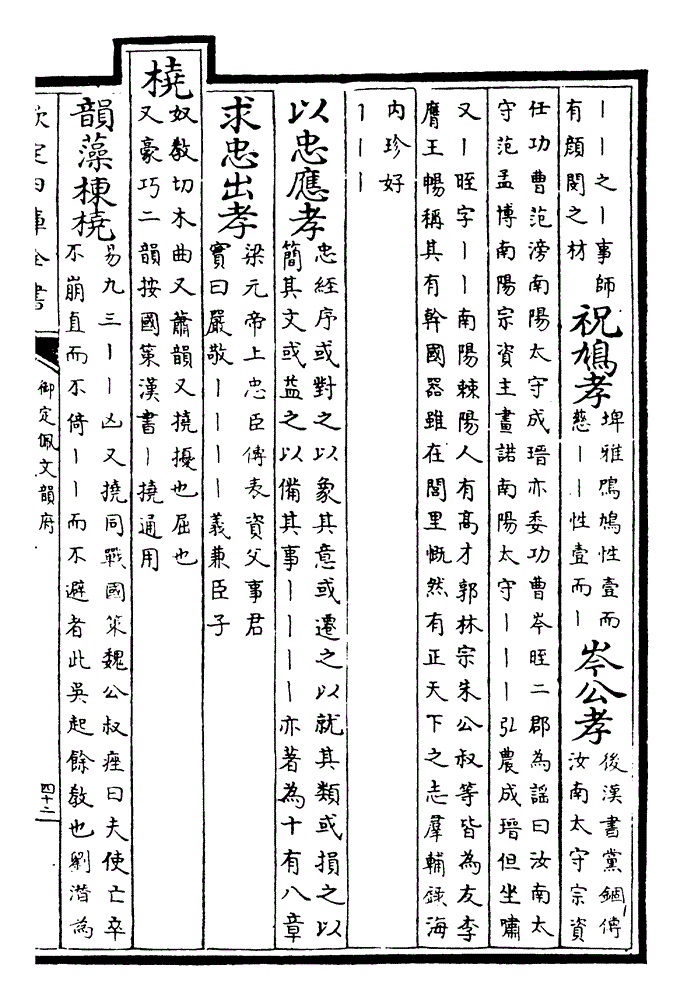 ｜｜之｜事師
有顔閔之材
祝鳩孝
埤雅鳲鳩性壹而
慈｜｜性壹而｜
岑公孝
後漢書黨錮傳
汝南太守宗資
任功曹范滂南陽太守成瑨亦委功曹岑晊二郡為謡曰汝南太
守范孟博南陽宗資主畫諾南陽太守｜｜｜弘農成瑨但坐嘯
又｜晊字｜｜南陽棘陽人有髙才郭林宗朱公叔等皆為友李
膺王暢稱其有幹國器雖在閭里慨然有正天下之志羣輔錄海
内珍好
｜｜｜
以忠應孝
忠經序或對之以象其意或遷之以就其類或損之以
簡其文或益之以備其事｜｜｜｜亦著為十有八章
求忠出孝
梁元帝上忠臣傳表資父事君
實曰嚴敬｜｜｜｜義兼臣子
橈
奴教切木曲又蕭韻又撓擾也屈也
又豪巧二韻按國策漢書｜撓通用
韻藻棟橈
易九三｜｜凶又撓同戰國策魏公叔痤曰夫使亡卒
不崩直而不倚｜｜而不避者此吳起餘教也劉潛為
欽定四庫全書
御定佩文韻府
四十二